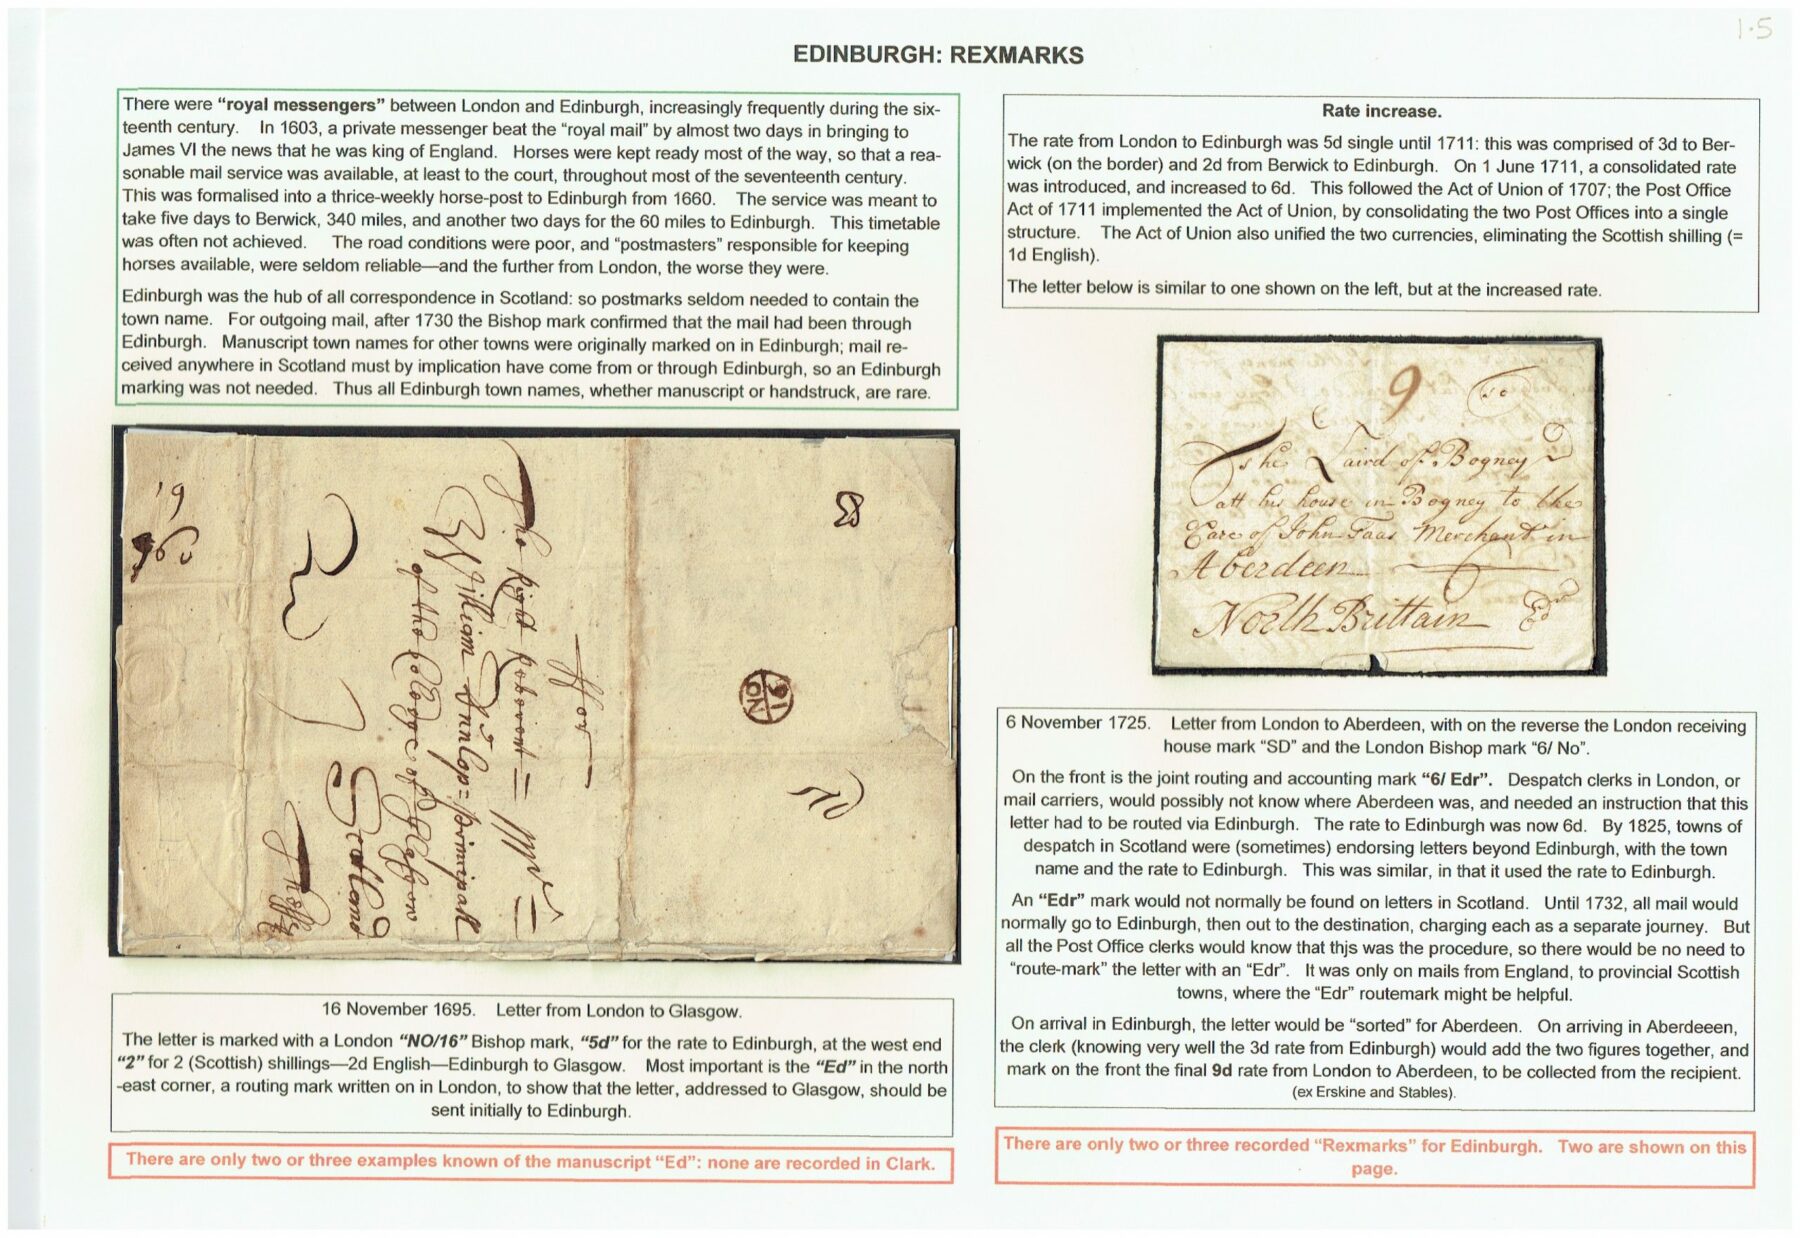 1·5
EDINBURGH: REXMARKS
There were “royal messengers” between London and Edinburgh, increasingly frequently during the six-
teenth century. In 1603, a private messenger beat the “royal mail” by almost two days in bringing to
James VI the news that he was king of England. Horses were kept ready most of the way, so that a rea-
sonable mail service was available, at least to the court, throughout most of the seventeenth century.
This was formalised into a thrice-weekly horse-post to Edinburgh from 1660. The service was meant to
take five days to Berwick, 340 miles, and another two days for the 60 miles to Edinburgh. This timetable
was often not achieved. The road conditions were poor, and “postmasters” responsible for keeping
horses available, were seldom reliable—and the further from London, the worse they were.
Edinburgh was the hub of all correspondence in Scotland: so postmarks seldom needed to contain the
town name. For outgoing mail, after 1730 the Bishop mark confirmed that the mail had been through
Edinburgh. Manuscript town names for other towns were originally marked on in Edinburgh; mail re-
ceived anywhere in Scotland must by implication have come from or through Edinburgh, so an Edinburgh
marking was not needed. Thus all Edinburgh town names, whether manuscript or handstruck, are rare.
Ed
16
NO
5d
2
For
The Right Reverent =
William Dunlop = principall
of the Colledge of Glasgow
Scotland
16 November 1695. Letter from London to Glasgow.
The letter is marked with a London “NO/16” Bishop mark, “5d” for the rate to Edinburgh, at the west end
“2” for 2 (Scottish) shillings—2d English—Edinburgh to Glasgow. Most important is the “Ed” in the north
-east corner, a routing mark written on in London, to show that the letter, addressed to Glasgow, should be
sent initially to Edinburgh.
There are only two or three examples known of the manuscript “Ed”: none are recorded in Clark.
Rate increase.
The rate from London to Edinburgh was 5d single until 1711: this was comprised of 3d to Ber-
wick (on the border) and 2d from Berwick to Edinburgh. On 1 June 1711, a consolidated rate
was introduced, and increased to 6d. This followed the Act of Union of 1707; the Post Office
Act of 1711 implemented the Act of Union, by consolidating the two Post Offices into a single
structure. The Act of Union also unified the two currencies, eliminating the Scottish shilling (=
1d English).
The letter below is similar to one shown on the left, but at the increased rate.
9
The Laird of Bogney
att his house in Bogney to the
Care of John Faas Merchant in
Aberdeen
6
North Brittain Edr
6 November 1725. Letter from London to Aberdeen, with on the reverse the London receiving
house mark “SD” and the London Bishop mark “6/ No”.
On the front is the joint routing and accounting mark “6/ Edr”. Despatch clerks in London, or
mail carriers, would possibly not know where Aberdeen was, and needed an instruction that this
letter had to be routed via Edinburgh. The rate to Edinburgh was now 6d. By 1825, towns of
despatch in Scotland were (sometimes) endorsing letters beyond Edinburgh, with the town
name and the rate to Edinburgh. This was similar, in that it used the rate to Edinburgh.
An “Edr” mark would not normally be found on letters in Scotland. Until 1732, all mail would
normally go to Edinburgh, then out to the destination, charging each as a separate journey. But
all the Post Office clerks would know that thjs was the procedure, so there would be no need to
“route-mark” the letter with an “Edr”. It was only on mails from England, to provincial Scottish
towns, where the “Edr” routemark might be helpful.
On arrival in Edinburgh, the letter would be “sorted” for Aberdeen. On arriving in Aberdeeen,
the clerk (knowing very well the 3d rate from Edinburgh) would add the two figures together, and
mark on the front the final 9d rate from London to Aberdeen, to be collected from the recipient.
(ex Erskine and Stables).
There are only two or three recorded “Rexmarks” for Edinburgh. Two are shown on this
page.